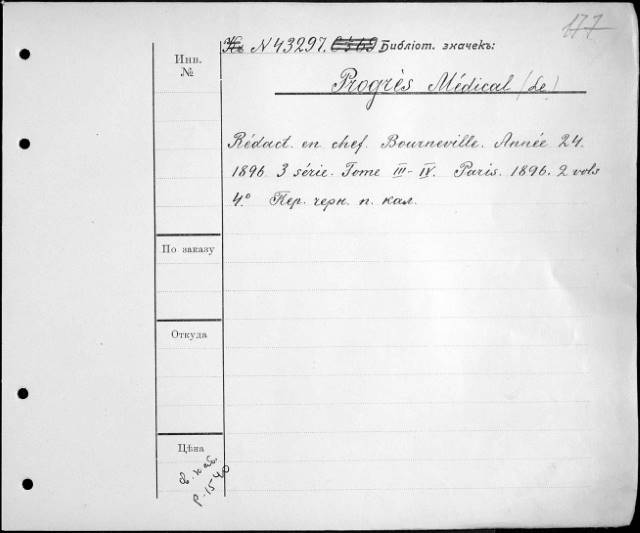 177
Инв.
№
N 43297. Библіот. значекъ:
Progrès Médical (Le)
Rédact. en chef. Bourneville. Année 24.
1896. 3 série. Tome III-IV. Paris. 1896. 2 vols
4º Пер. черн. п. кал.
По заказу
Откуда
Цѣна
р. 15 40